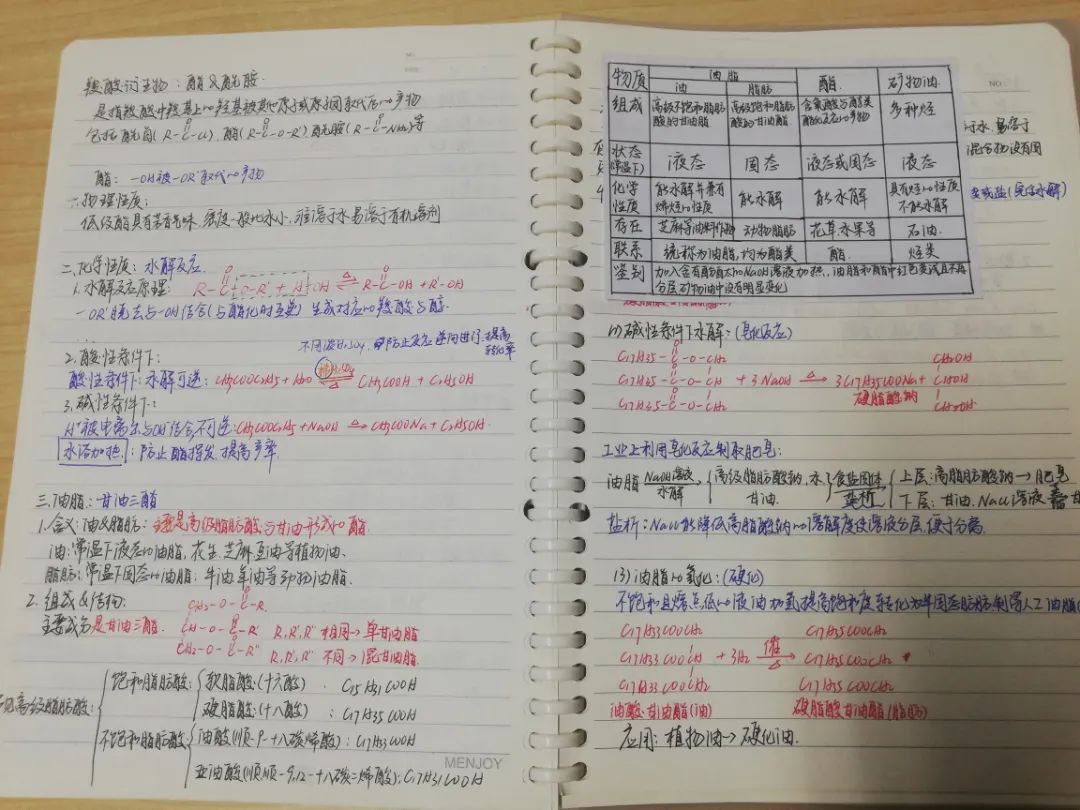 羧酸衍生物：酯&酰胺.
是指羧酸中羧基上的羟基被其他原子或原子团取代后的产物
包括酰卤(R-C-Cl), 酯(R-C-O-R') 酰胺(R-C-NH2)等
O O O
酯：-OH被-OR'取代的产物
一.物理性质：
低级酯具有芳香气味，密度一般比水小，难溶于水易溶于有机溶剂
二.化学性质：水解反应.
1.水解反应原理：R-C-O-R' + H-OH ⇌ R-C-OH + R'-OH
O △ O
-OR'脱去与-OH结合(与酯化时互逆) 生成对应的羧酸与醇.
不用浓H2SO4, 防止反应逆向进行，提高
转化率
2.酸性条件下：
酸性条件下：水解可逆：CH3COOC2H5 + H2O ⇌ CH3COOH + C2H5OH
稀H2SO4 △
3.碱性条件下：
H+被中和与OH结合,不可逆:CH3COOC2H5 + NaOH →△ CH3COONa + C2H5OH.
水浴加热：防止酯挥发,提高产率.
三.油脂：甘油三酯
1.含义：油&脂肪：主要是高级脂肪酸与甘油形成的酯.
油：常温下液态的油脂，花生.芝麻.豆油等植物油.
脂肪：常温下固态的油脂：牛油.羊油等动物油脂.
2.组成&结构：
主要成分是甘油三酯.
O
CH2-O-C-R
O
CH-O-C-R' R,R',R''相同→单甘油脂
O
CH2-O-C-R'' R,R',R''不同→混甘油脂.
见高级脂肪酸：
饱和脂肪酸：软脂酸(十六酸)：C15H31COOH
硬脂酸(十八酸)：C17H35COOH
不饱和脂肪酸 油酸(顺-9-十八碳烯酸)：C17H33COOH
亚油酸(顺,顺-9,12-十八碳二烯酸)：C17H31COOH
MENJOY
NO:
物质 油脂 酯 矿物油.
油 脂肪
组成 高级不饱和脂肪酸的甘油酯 高级饱和脂肪酸的甘油酯 含氧酸与醇类酯化反应的产物 多种烃
状态(常温下) 液态 固态 液态或固态 液态
化学性质 能水解并兼有烯烃的性质 能水解 能水解 具有烃的性质不能水解
存在 芝麻等油料作物 动物脂肪 花草水果等 石油.
联系 统称为油脂，均为酯类 酯 烃类
鉴别 加入含有酚酞的NaOH溶液加热，油脂和酯中红色变浅且不再
分层 矿物油中没有明显变化
于水.易溶于
混合物没有固
变成盐(完全水解)
碱性条件下水解：(皂化反应)
O
C17H35-C-O-CH2 CH2OH
O
C17H35-C-O-CH + 3NaOH →△ 3C17H35COONa + CHOH
O
C17H35-C-O-CH2 硬脂酸钠 CH2OH
工业上利用皂化反应制取肥皂：
油脂 NaOH溶液 水解 高级脂肪酸钠,水 甘油. 食盐固体 盐析 上层：高脂肪酸钠→肥皂
下层：甘油,NaCl溶液
盐析：NaCl能降低高脂酸钠的溶解度使溶液分层,便于分离.
(3)油脂的氢化：(硬化)
不饱和且熔点低的液油加氢提高饱和度转化为半固态脂肪制得人工油脂(
C17H33COOCH2 C17H35COOCH2
C17H33COOCH + 3H2 催 △ C17H35COOCH2
C17H33COOCH2 C17H35COOCH2
油酸甘油酯(油) 硬脂酸甘油酯(脂肪)
应用：植物油→硬化油.